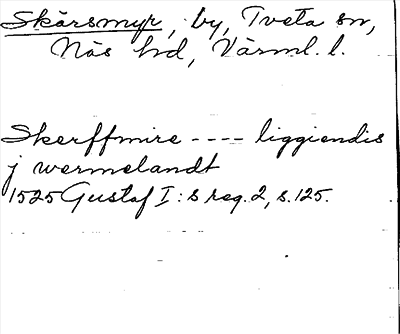 Skärsmyr, by, Tveta sn,
Näs hd, Värml. l.
Skerffmire ---- liggiendis
j wermelandt
1525 Gustaf I:s reg. 2, s. 125.